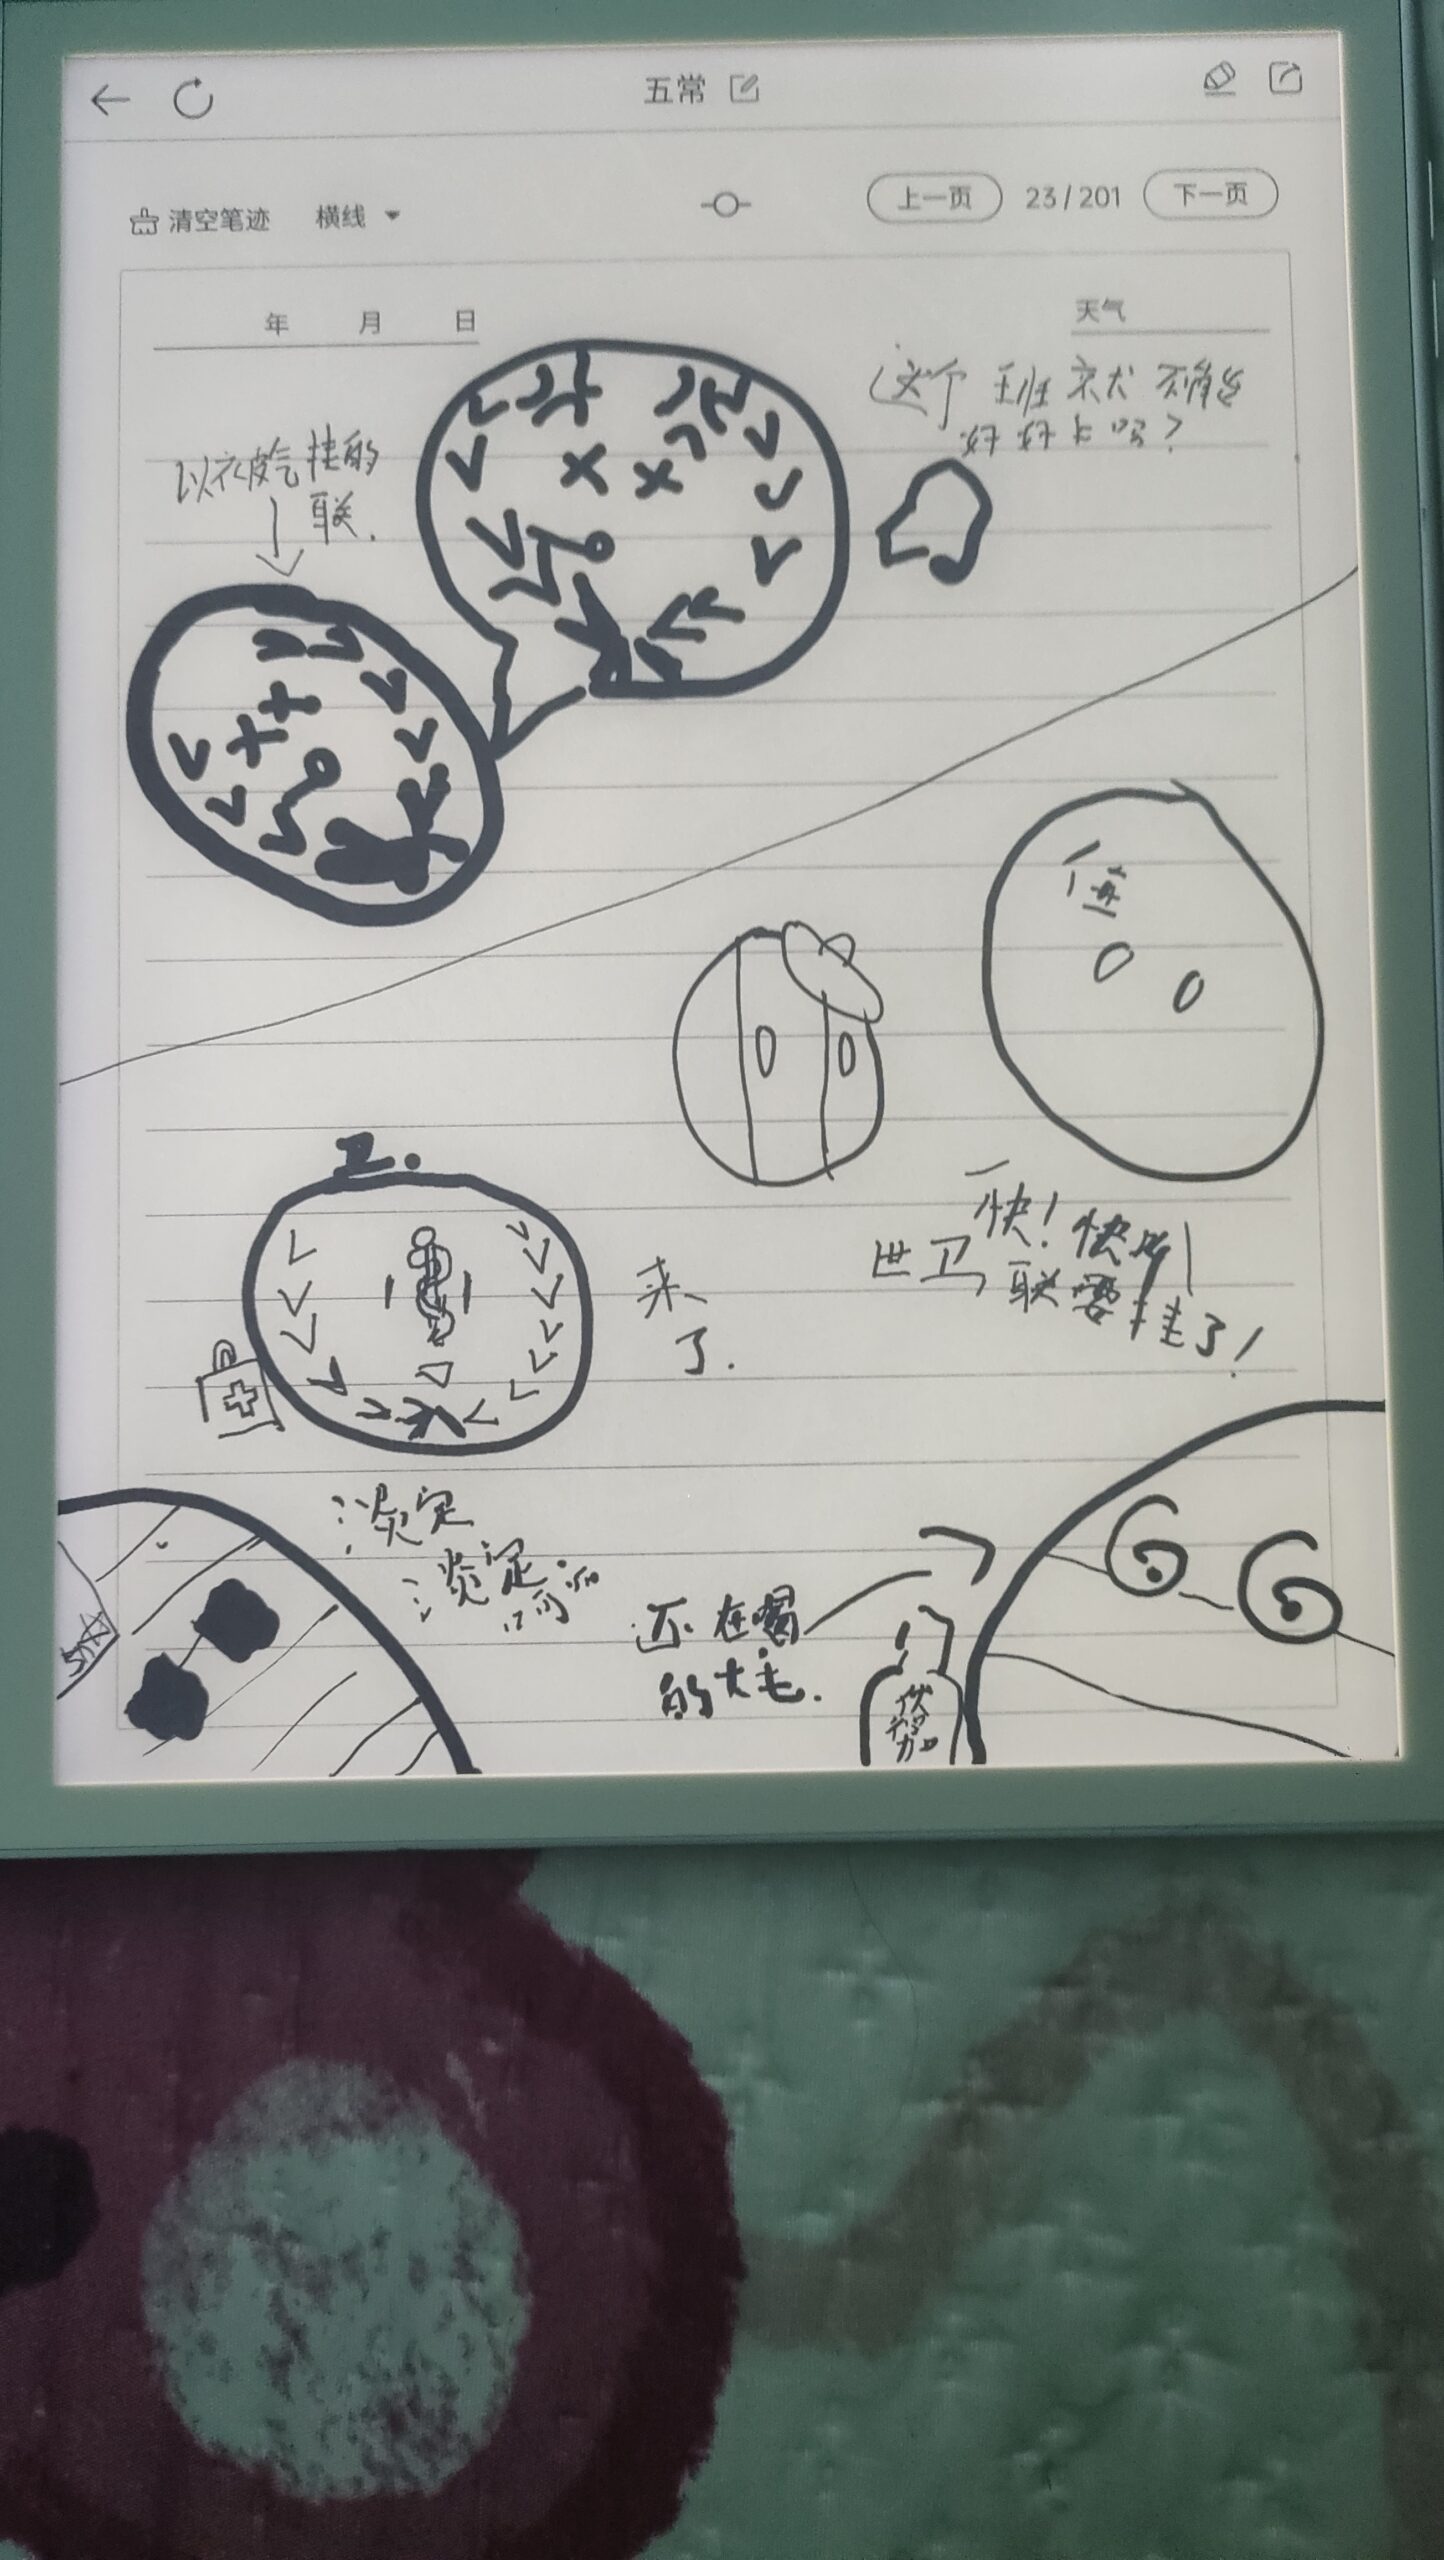 五常
清空笔迹 横线
上一页 23/201 下一页
年 月 日
天气
这个班
好好上吗?
气挂的
联.
卫.
来
了.
快!快
世卫,联要挂了!
淡定
淡定
还在喝
的大毛.
伏